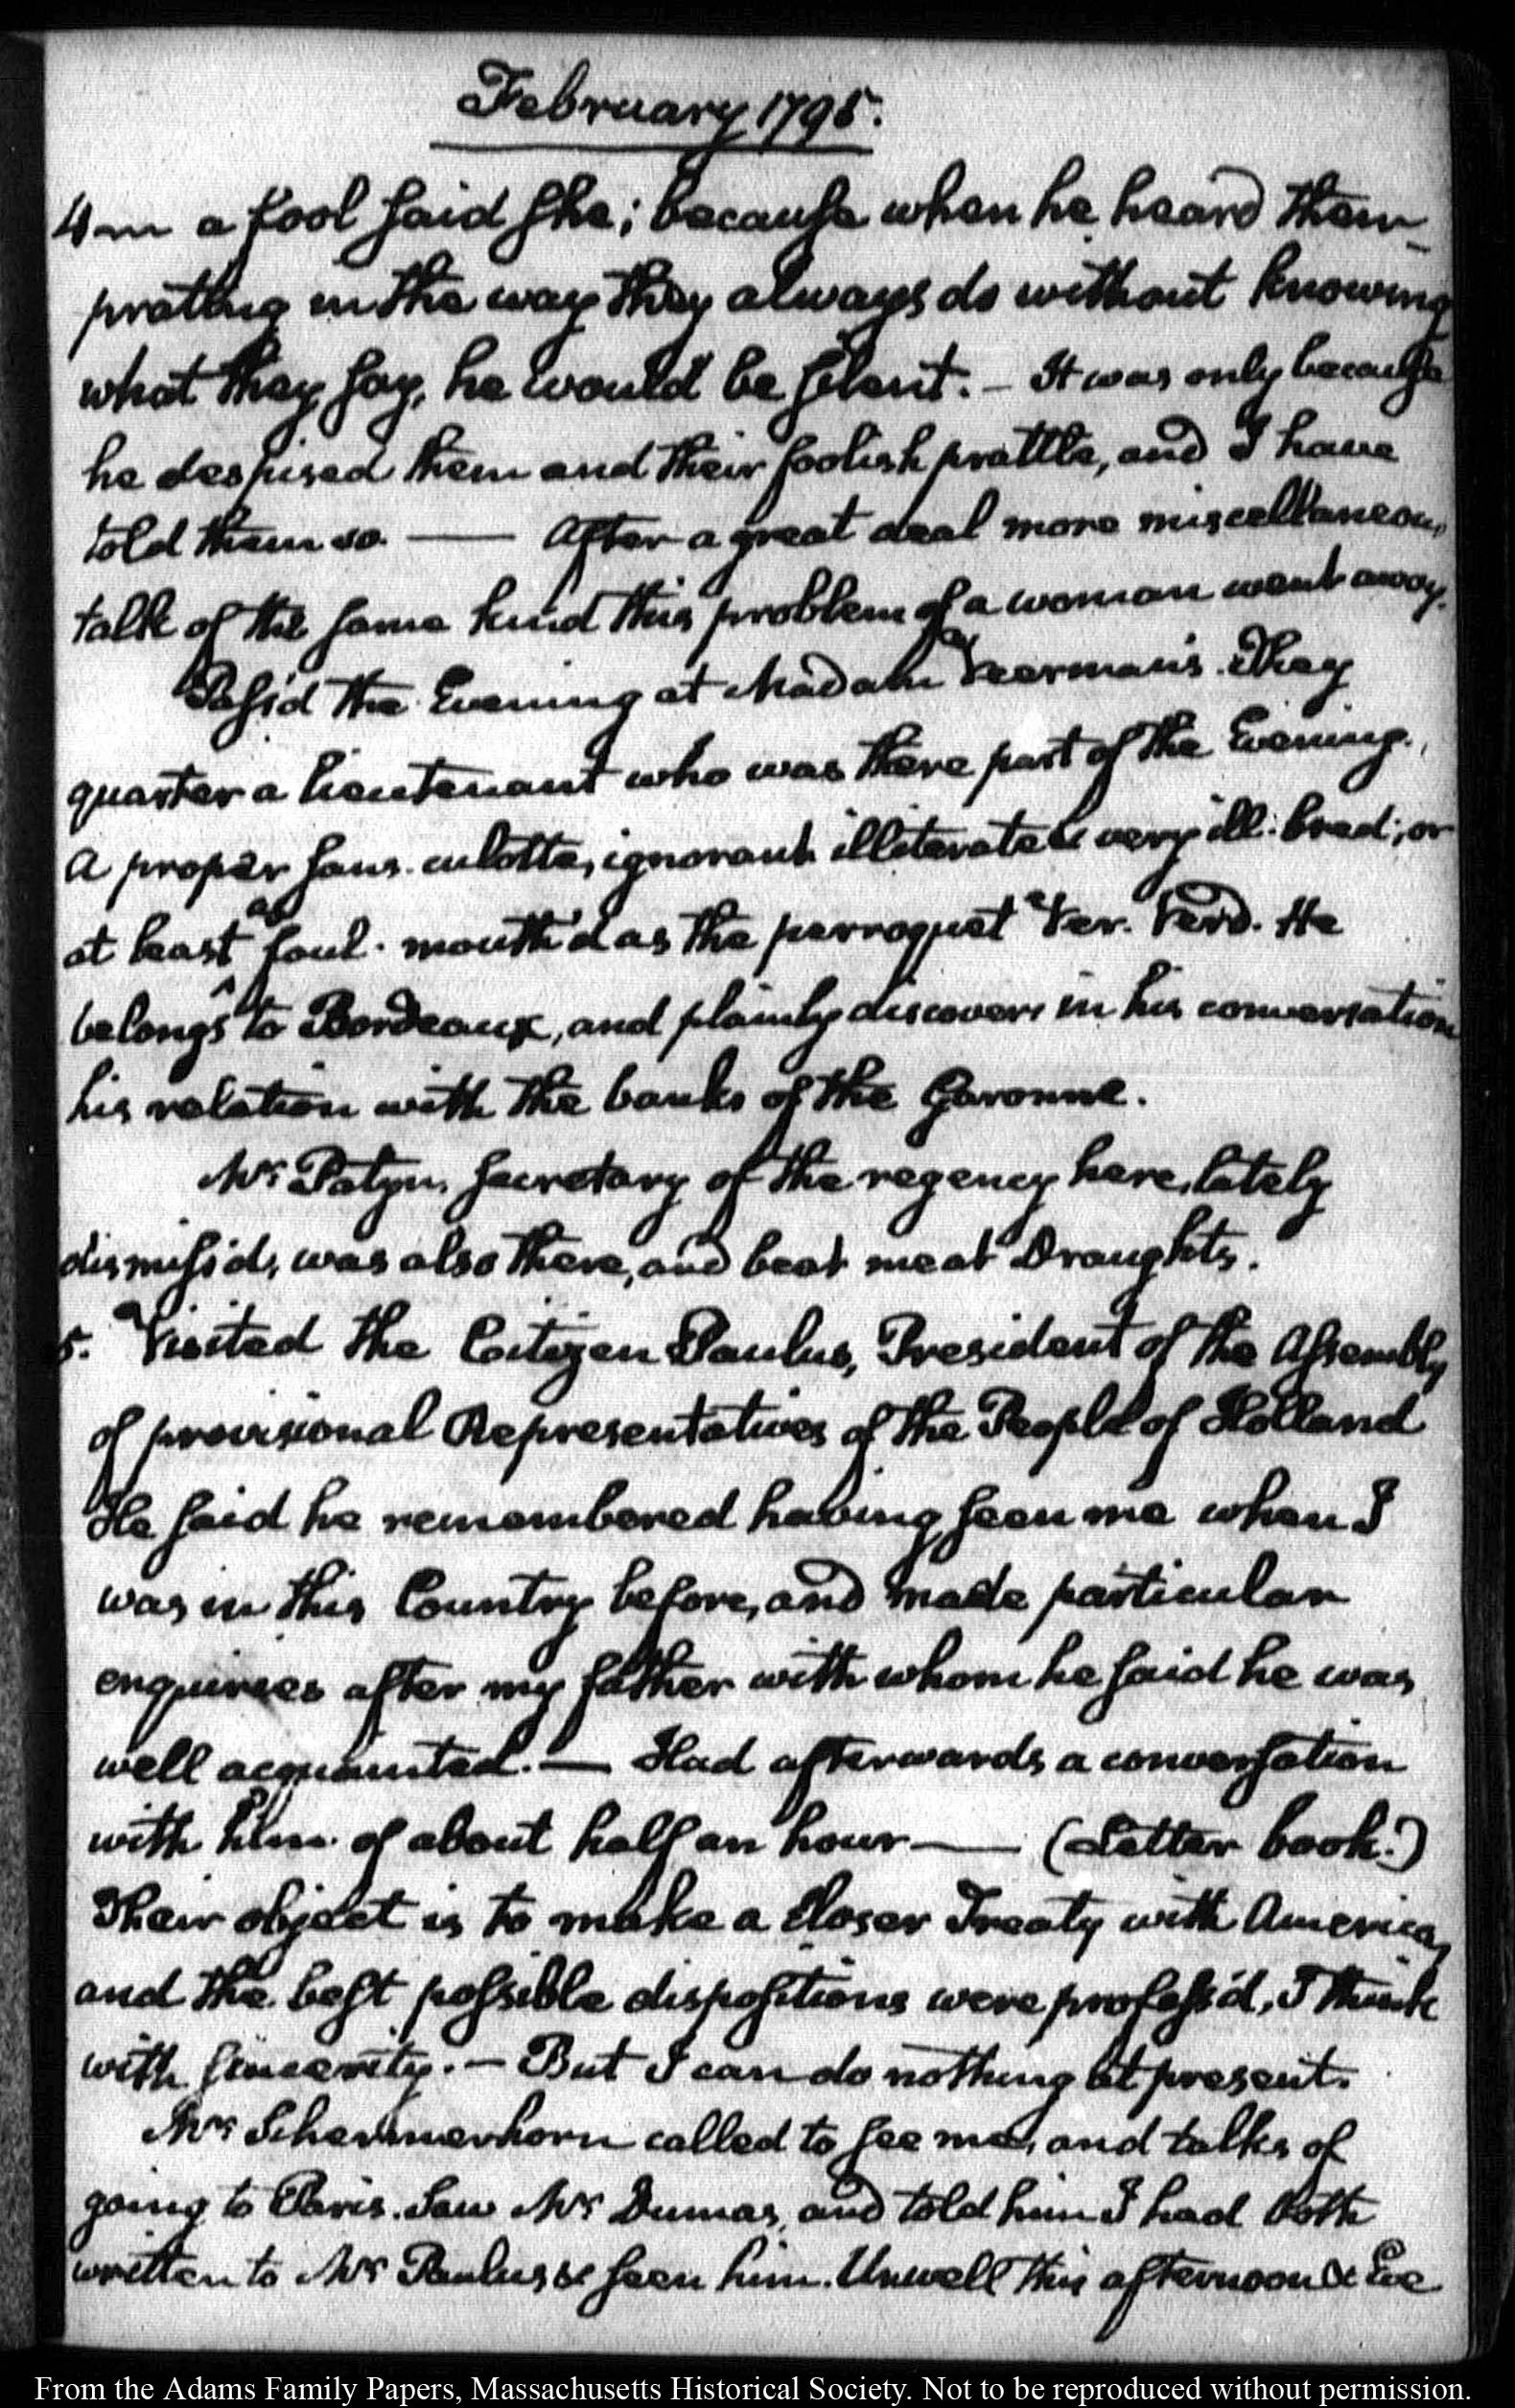 February 1795.
4 m a fool said she; because when he heard them
prating in the way they always do without knowing
what they say, he would be silent. – It was only because
he despised them and their foolish prattle, and I have
told them so. —— After a great deal more miscellaneous
talk of the same kind this problem of a woman went away.
Pass'd the Evening at Madam Veerman's. They
quarter a lieutenant who was there part of the Evening.
A proper sans-culotte, ignorant illiterate & very ill-bred; or
at least as foul-mouth'd as the perroquet Ver-Verd. He
belongs to Bordeaux, and plainly discovers in his conversation
his relation with the banks of the Garonne.
Mr. Patyn, Secretary of the regency here, lately
dismiss'd, was also there, and beat me at Draughts.
5. Visited the Citizen Paulus, President of the Assembly
of provisional Representatives of the People of Holland
He said he remembered having seen me when I
was in this Country before, and made particular
enquiries after my father with whom he said he was
well acquainted. — Had afterwards a conversation
with him of about half an hour —— (Letter book.)
Their object is to make a closer Treaty with America,
and the best possible dispositions were profess'd, I think
with sincerity. – But I can do nothing at present.
Mr Schermerhorn called to see me, and talks of
going to Paris. Saw Mr Dumas, and told him I had both
written to Mr Paulus & seen him. Unwell this afternoon & Eve
From the Adams Family Papers, Massachusetts Historical Society. Not to be reproduced without permission.